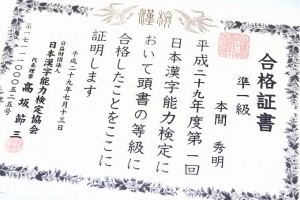 漢検
合格証書
準一級
本間 秀明
平成二十九年度第一回
日本漢字能力検定に
おいて頭書の等級に
合格したことをここに
証明します
平成二十九年七月十三日
公益財団法人
日本漢字能力検定協会
代表理事 高坂節三